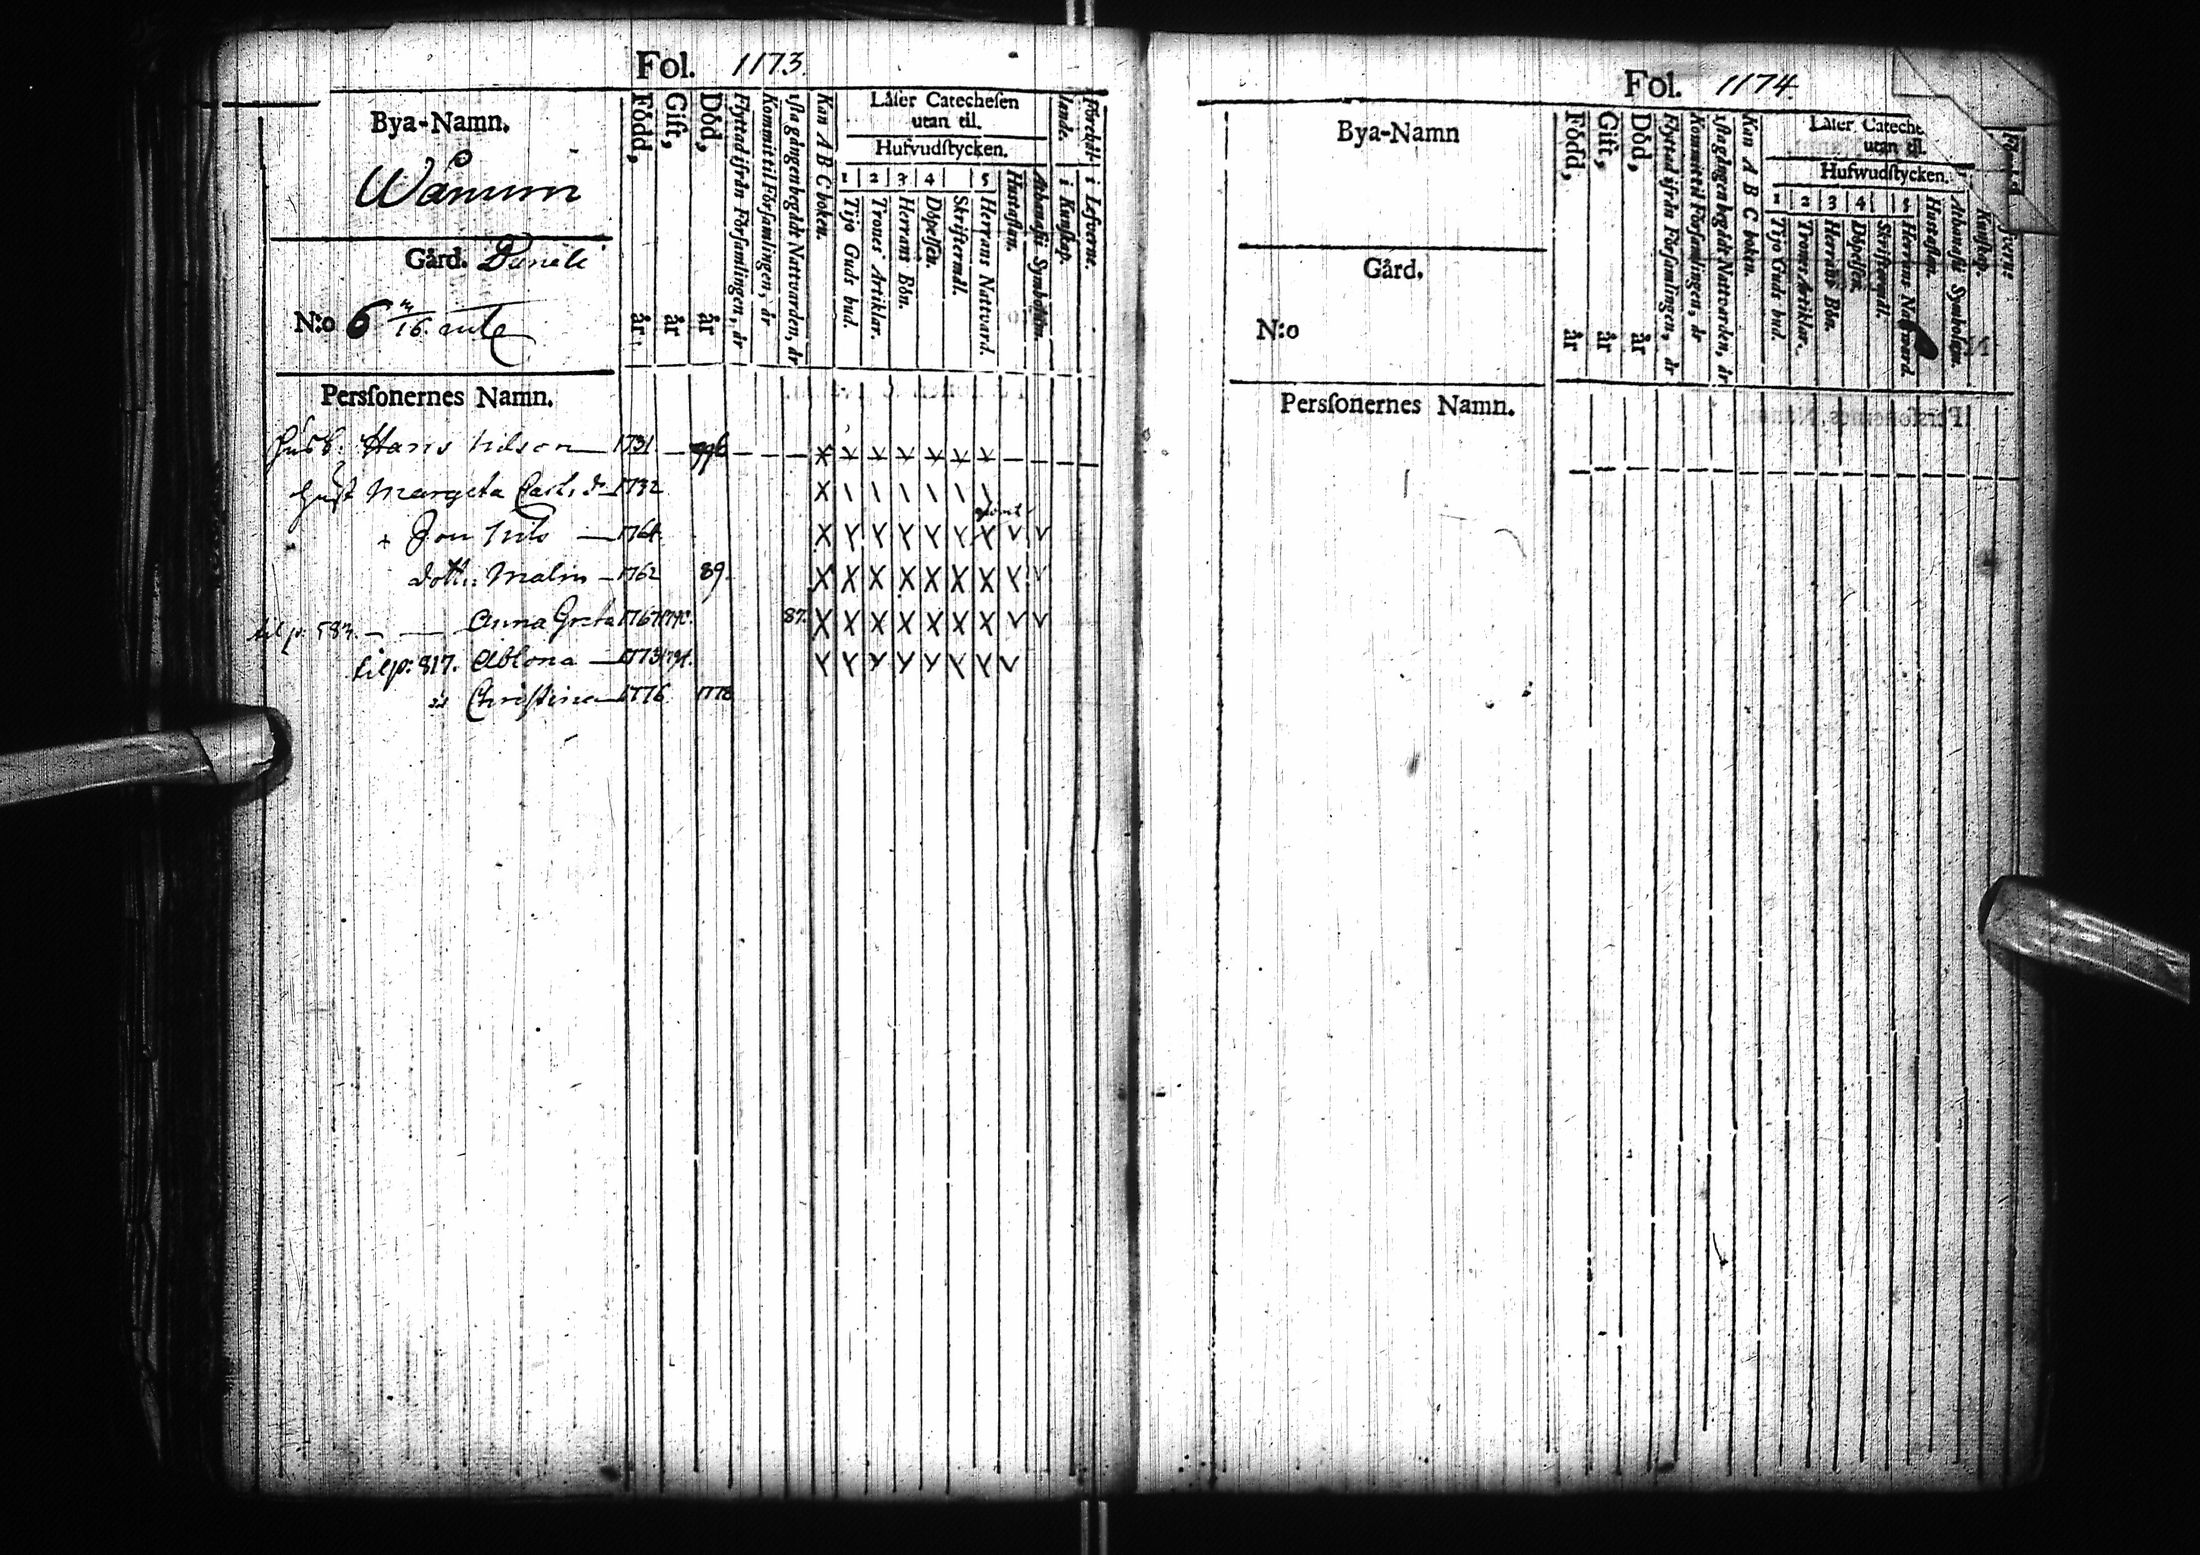 Fol. 1173.
Bya-Namn.
Wånum
Gård.
N:o 6
Persſonernes Namn.
Född, år
Gift, år
Död, år
Flyttad ifrån Församlingen, år
Kommit til Församlingen, år
1ſta gången begådt Nattvarden, år
Kan A B C boken.
Läſer Catecheſen
utan til.
Hufvudſtycken.
1 2 3 4 5
Tijo Guds bud.
Trones Artiklar.
Herrans Bön.
Döpelſen.
Skriftermål.
Herrans Nattvard.
Huſtaflan.
Athanaſii Symbolum.
i Kunſkap.
i Lefverne.
Huſb. Hans Nilson 1731 796
Huſt Margeta Carls d. 1732
Jon Nils 1764
dott: Malin 1762 89.
til p. 583. Anna Greta 1767 1790. 87.
til p: 817. Ablona 1773 1794.
Christina 1776 1778
Fol. 1174.
Bya-Namn
Gård.
N:o
Persſonernes Namn.
Född, år
Gift, år
Död, år
Flyttad ifrån Förſamlingen, år
Kommit til Förſamlingen, år
1ſta gången begådt Nattvarden, år
Kan A B C boken.
Läſer Cateche
utan til.
Hufwudſtycken.
1 2 3 4 5
Tijo Guds bud.
Trones Artiklar.
Herrans Bön.
Döpelſen.
Skriftermål.
Herrans Nattvard.
Huſtaflan.
Athanaſii Symbolum.
Kunſkap.